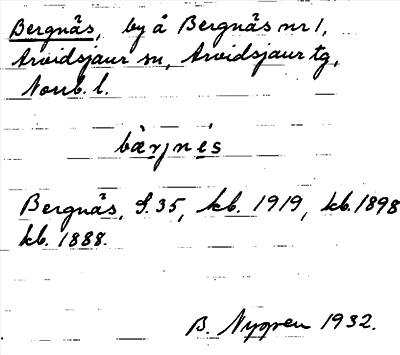 Bergnäs, by å Bergnäs nr 1,
Arvidsjaur sn, Arvidsjaur tg,
Norrb. l.
bàrjnés
Bergnäs, J. 35, kb. 1919, kb. 1898
kb. 1888.
B. Nygren 1932.